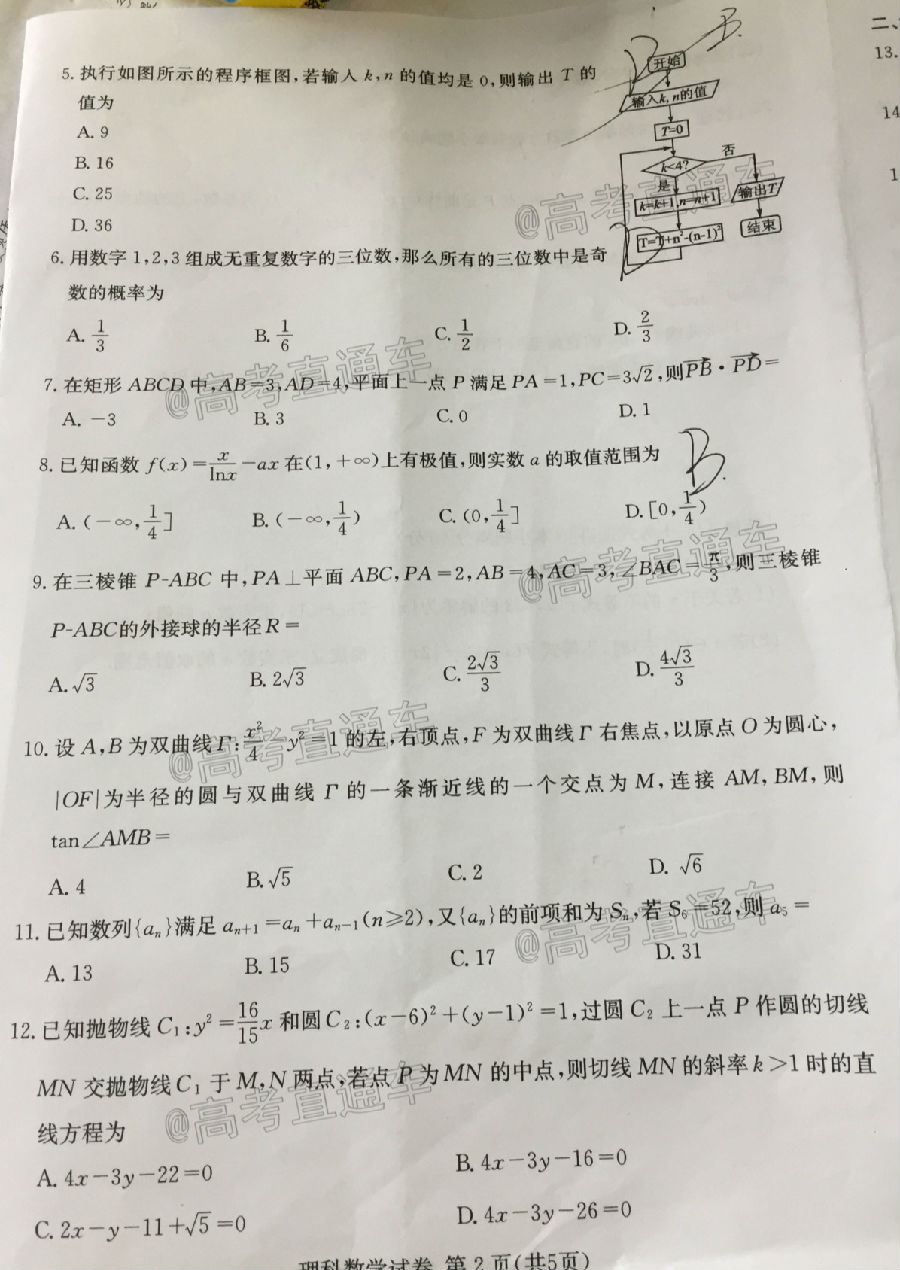 5. 执行如图所示的程序框图,若输入 k,n 的值均是 0,则输出 T 的
值为
A. 9
B. 16
C. 25
D. 36
开始
输入k,n的值
T=0
k<4?
否
是
k=k+1,n=n+1
输出T
结束
T=T+n²-(n-1)²
B
B.
6. 用数字 1,2,3 组成无重复数字的三位数,那么所有的三位数中是奇
数的概率为
A. 1/3 B. 1/6 C. 1/2 D. 2/3
7. 在矩形 ABCD 中,AB=3,AD=4,平面上一点 P 满足 PA=1,PC=3√2,则PB·PD=
A. -3 B. 3 C. 0 D. 1
8. 已知函数 f(x)=x/lnx-ax 在(1,+∞)上有极值,则实数 a 的取值范围为
B.
A. (-∞,1/4] B. (-∞,1/4) C. (0,1/4] D. [0,1/4)
9. 在三棱锥 P-ABC 中,PA⊥平面 ABC,PA=2,AB=4,AC=3,∠BAC=π/3,则三棱锥
P-ABC的外接球的半径R=
A. √3 B. 2√3 C. 2√3/3 D. 4√3/3
10. 设 A,B 为双曲线Γ:x²/4-y²=1 的左,右顶点,F 为双曲线 Γ 右焦点,以原点 O 为圆心,
|OF|为半径的圆与双曲线 Γ 的一条渐近线的一个交点为 M,连接 AM, BM,则
tan∠AMB=
A. 4 B. √5 C. 2 D. √6
11. 已知数列{aₙ}满足 aₙ₊₁=aₙ+aₙ₋₁(n≥2),又{aₙ}的前项和为 Sₙ,若 S₆=52,则 a₅=
A. 13 B. 15 C. 17 D. 31
12. 已知抛物线 C₁:y²=16/15x 和圆 C₂:(x-6)²+(y-1)²=1,过圆 C₂ 上一点 P 作圆的切线
MN 交抛物线 C₁ 于 M,N 两点,若点 P 为MN 的中点,则切线 MN 的斜率 k>1 时的直
线方程为
A. 4x-3y-22=0 B. 4x-3y-16=0
C. 2x-y-11+√5=0 D. 4x-3y-26=0
理科数学试卷 第 2 页(共5页)
二、
13.
14
1
@高考直通车
@高考直通车
@高考直通车
@高考直通车
@高考直通车
@高考直通车